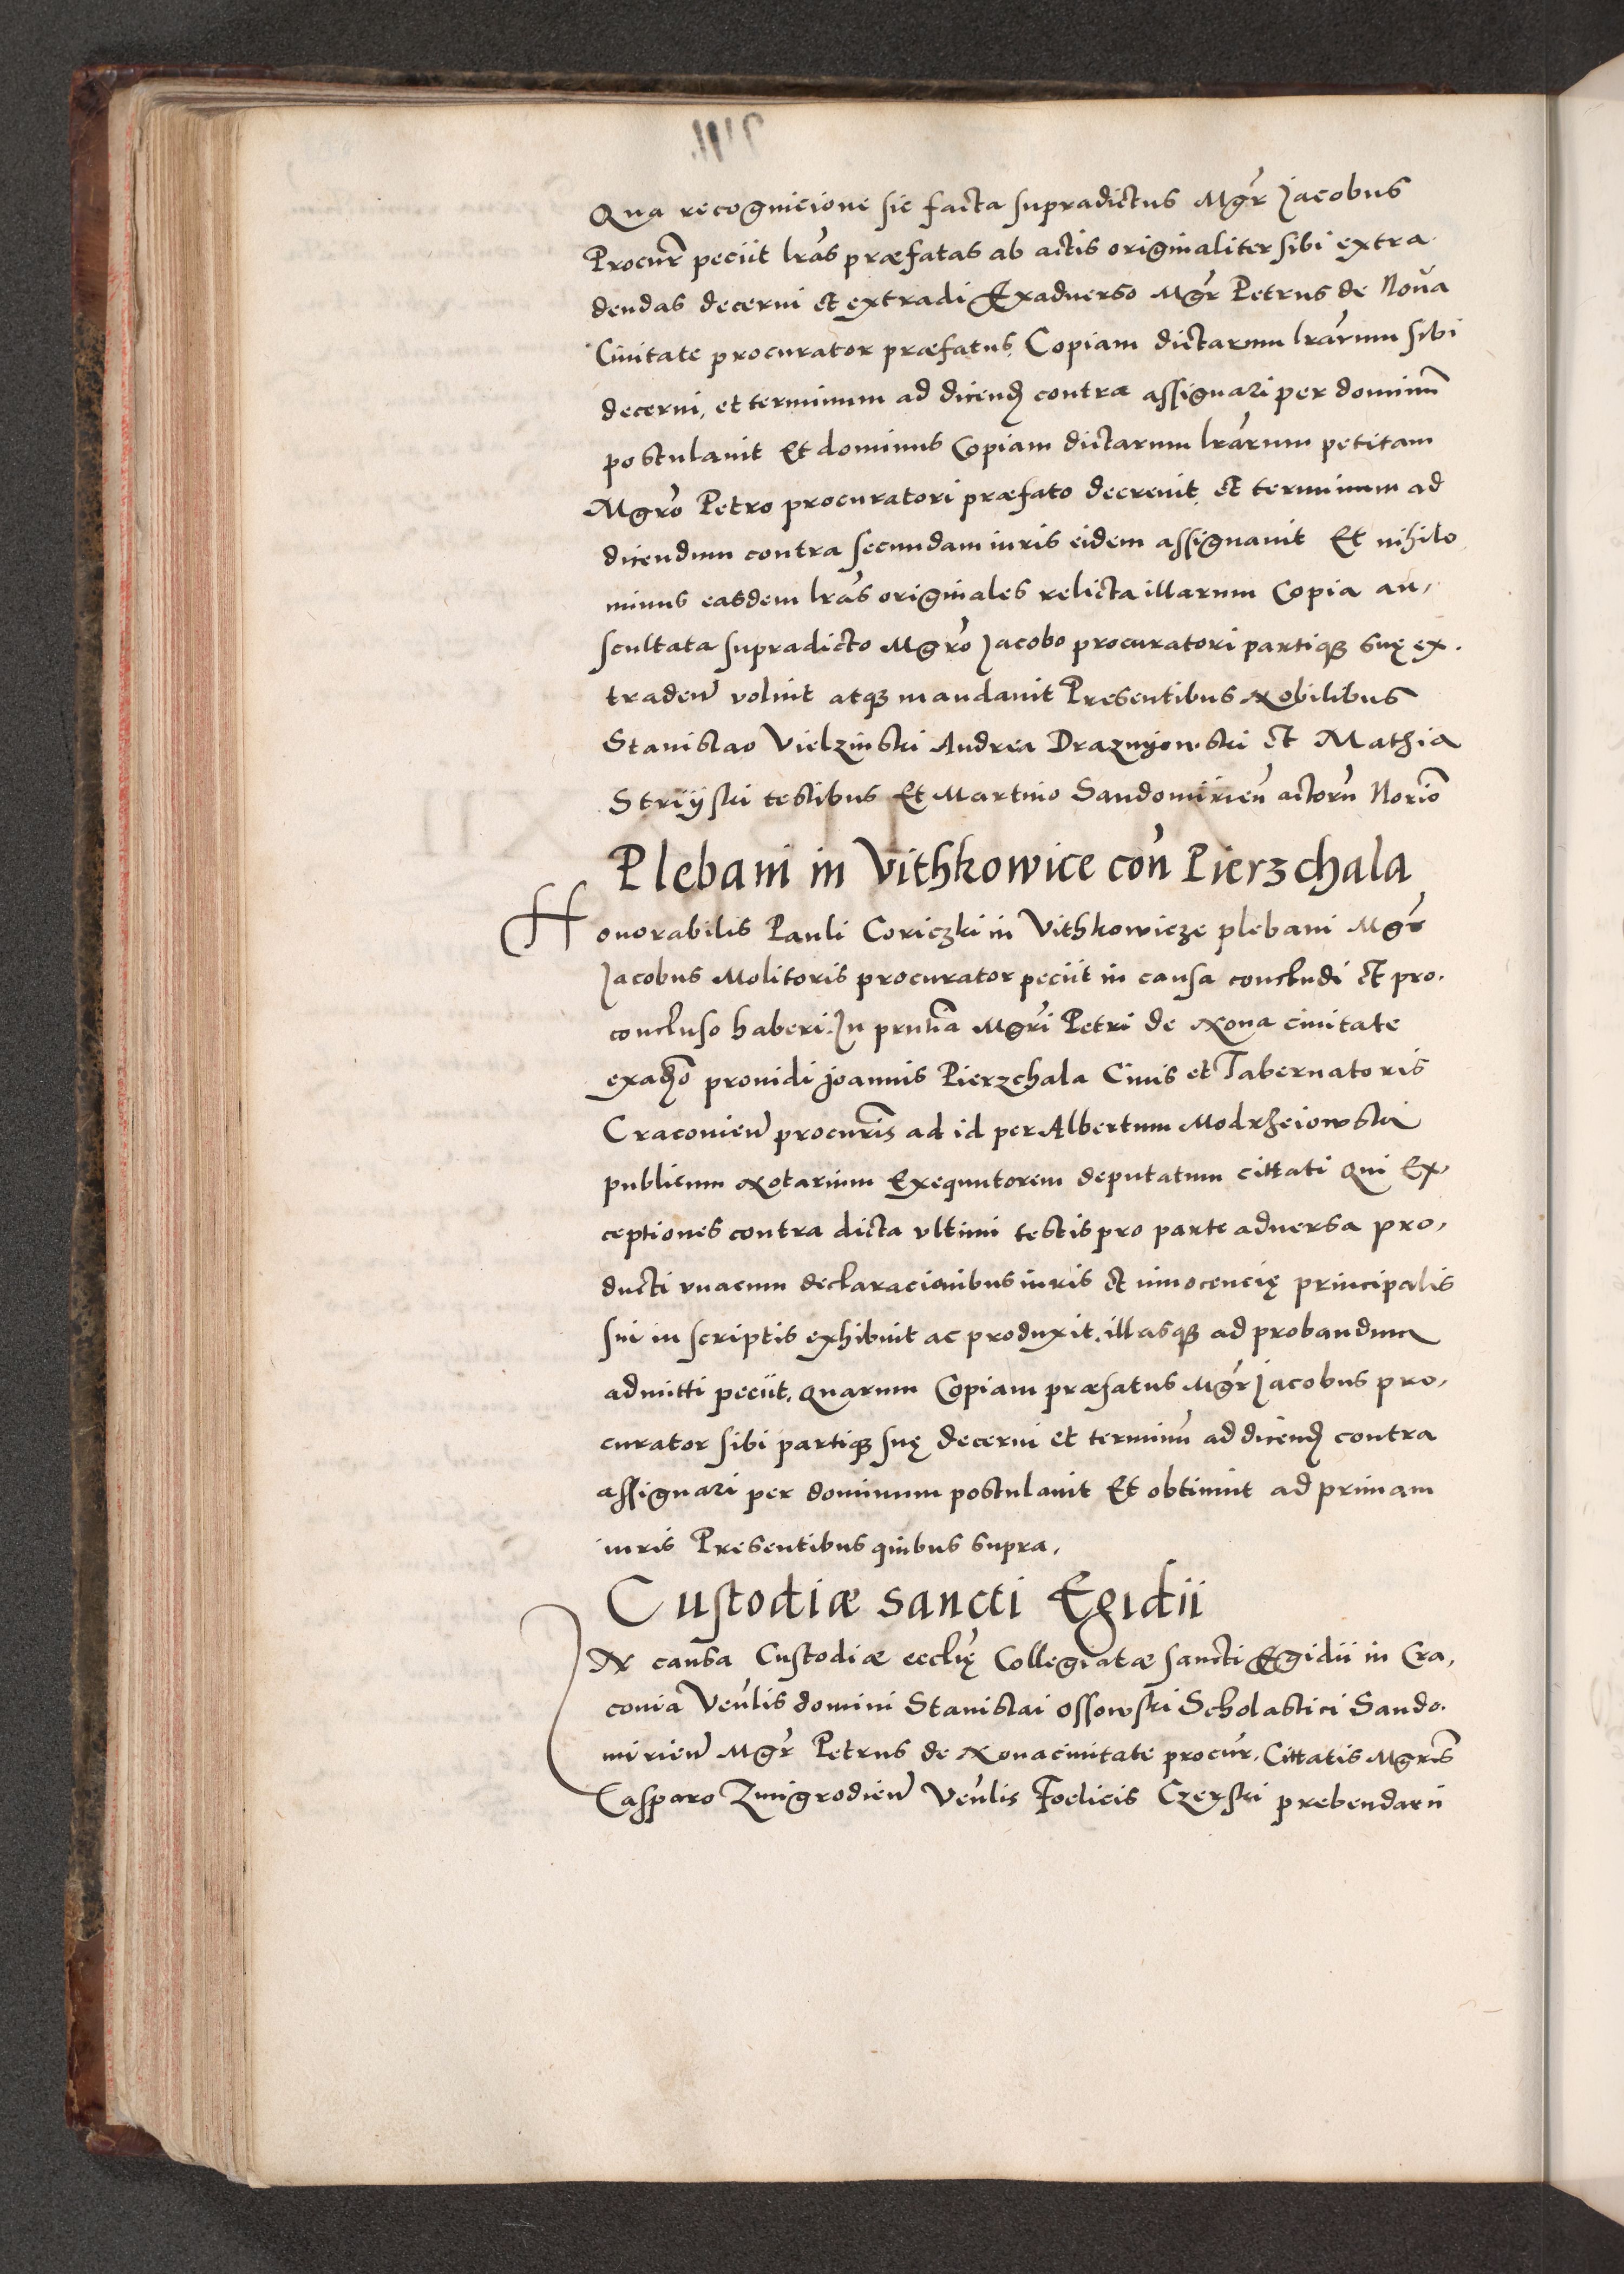 Qua recognicione sic facta supradictus Mgr̃ Jacobus
Procur̃ peciit lr̃as præfatas ab actis originaliter sibi extra
dendas decerni et extradi Exaduerso Mgr̃ Petrus de Noua
Ciuitate procurator præfatus Copiam dictarum lr̃arum sibi
decerni, et terminum ad dicend̃ contra assignari per dominũ
postulauit Et dominus Copiam dictarum lr̃arum petitam
Mgr̃o Petro procuratori præfato decreuit, et terminum ad
dicendum contra secundam iuris eidem assignauit Et nihilo
minus easdem lr̃as originales relicta illarum Copia au,
scultata supradicto Mgr̃o Jacobo procuratori partiqȝ suę ex.
traden̄ voluit atqȝ mandauit Presentibus Nobilibus
Stanislao Vielzinski Andrea Draznyowski et Mathia
Strÿski testibus Et Martino Sandomirien̄ actorũ Norio̅
Plebani in Vithkowice con̄ Pierzchala
Honorabilis Pauli Coriczki in Vithkowicze plebani Mgr̃
Jacobus Molitoris procurator peciit in causa concludi et pro.
concluso haberi. In pn̄tia Mgr̃i Petri de Noua ciuitate
exad̃o prouidi Joannis Pierzchala Ciuis et Tabernatoris
Cracouien̄ procur̃is ad id per Albertum Modrzeiowski
publicum Notarium Exequutorem deputatum cittati Qui Ex,
ceptiones contra dicta vltimi testis pro parte aduersa pro,
ducti vnacum declaracionibus iuris et innocencię principalis
sui in scriptis exhibuit ac produxit, illasqȝ ad probandum
admitti peciit, quarum Copiam præfatus Mgr̃ Jacobus pro,
curator sibi partiqȝ suę decerni et terminũ ad dicend̃ contra
assignari per dominum postulauit Et obtinuit ad primam
iuris Presentibus quibus supra,
Custodiæ sancti Egidii
IN causa Custodiæ eccl̃ię Collegiatæ sancti Egidii in Cra,
couia Ven̄lis domini Stanislai Ossowski Scholastici Sando.
mirien̄ Mgr̃ Petrus de Nouaciuitate procur̃, Cittatis Mgr̃is
Casparo Zmigrodien̄ Ven̄lis Foelicis Czerski prebendarii